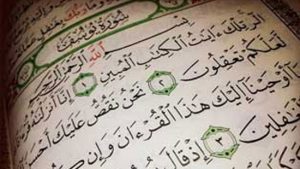 سُورَةُ يُوسُفَ
بِسْمِ اللَّهِ الرَّحْمَٰنِ
الٓر تِلْكَ ءَايَٰتُ الْكِتَٰبِ الْمُبِينِ ١ إِنَّآ أَنزَلْنَٰهُ
لَّعَلَّكُمْ تَعْقِلُونَ ٢ نَحْنُ نَقُصُّ عَلَيْكَ أَحْسَنَ
أَوْحَيْنَآ إِلَيْكَ هَٰذَا الْقُرْءَانَ وَإِن
الْغَٰفِلِينَ ٣ إِذْ قَالَ